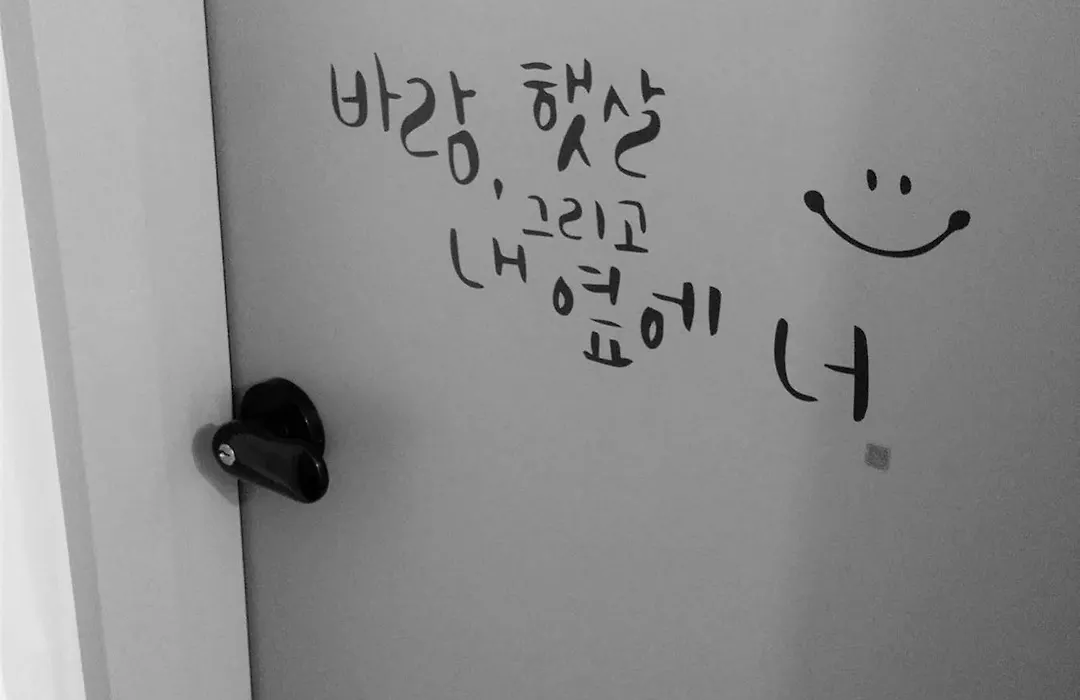 바람, 햇살
그리고
내 옆에 너